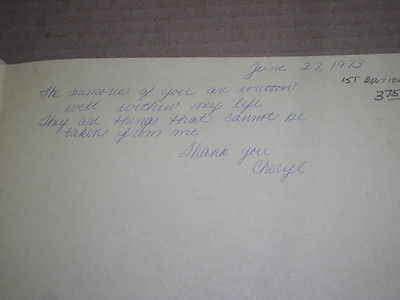 June 27, 1973
1ST EDITION
375
The memories of you are written
well within my life
They are things that cannot be
taken from me
Thank you
Cheryl